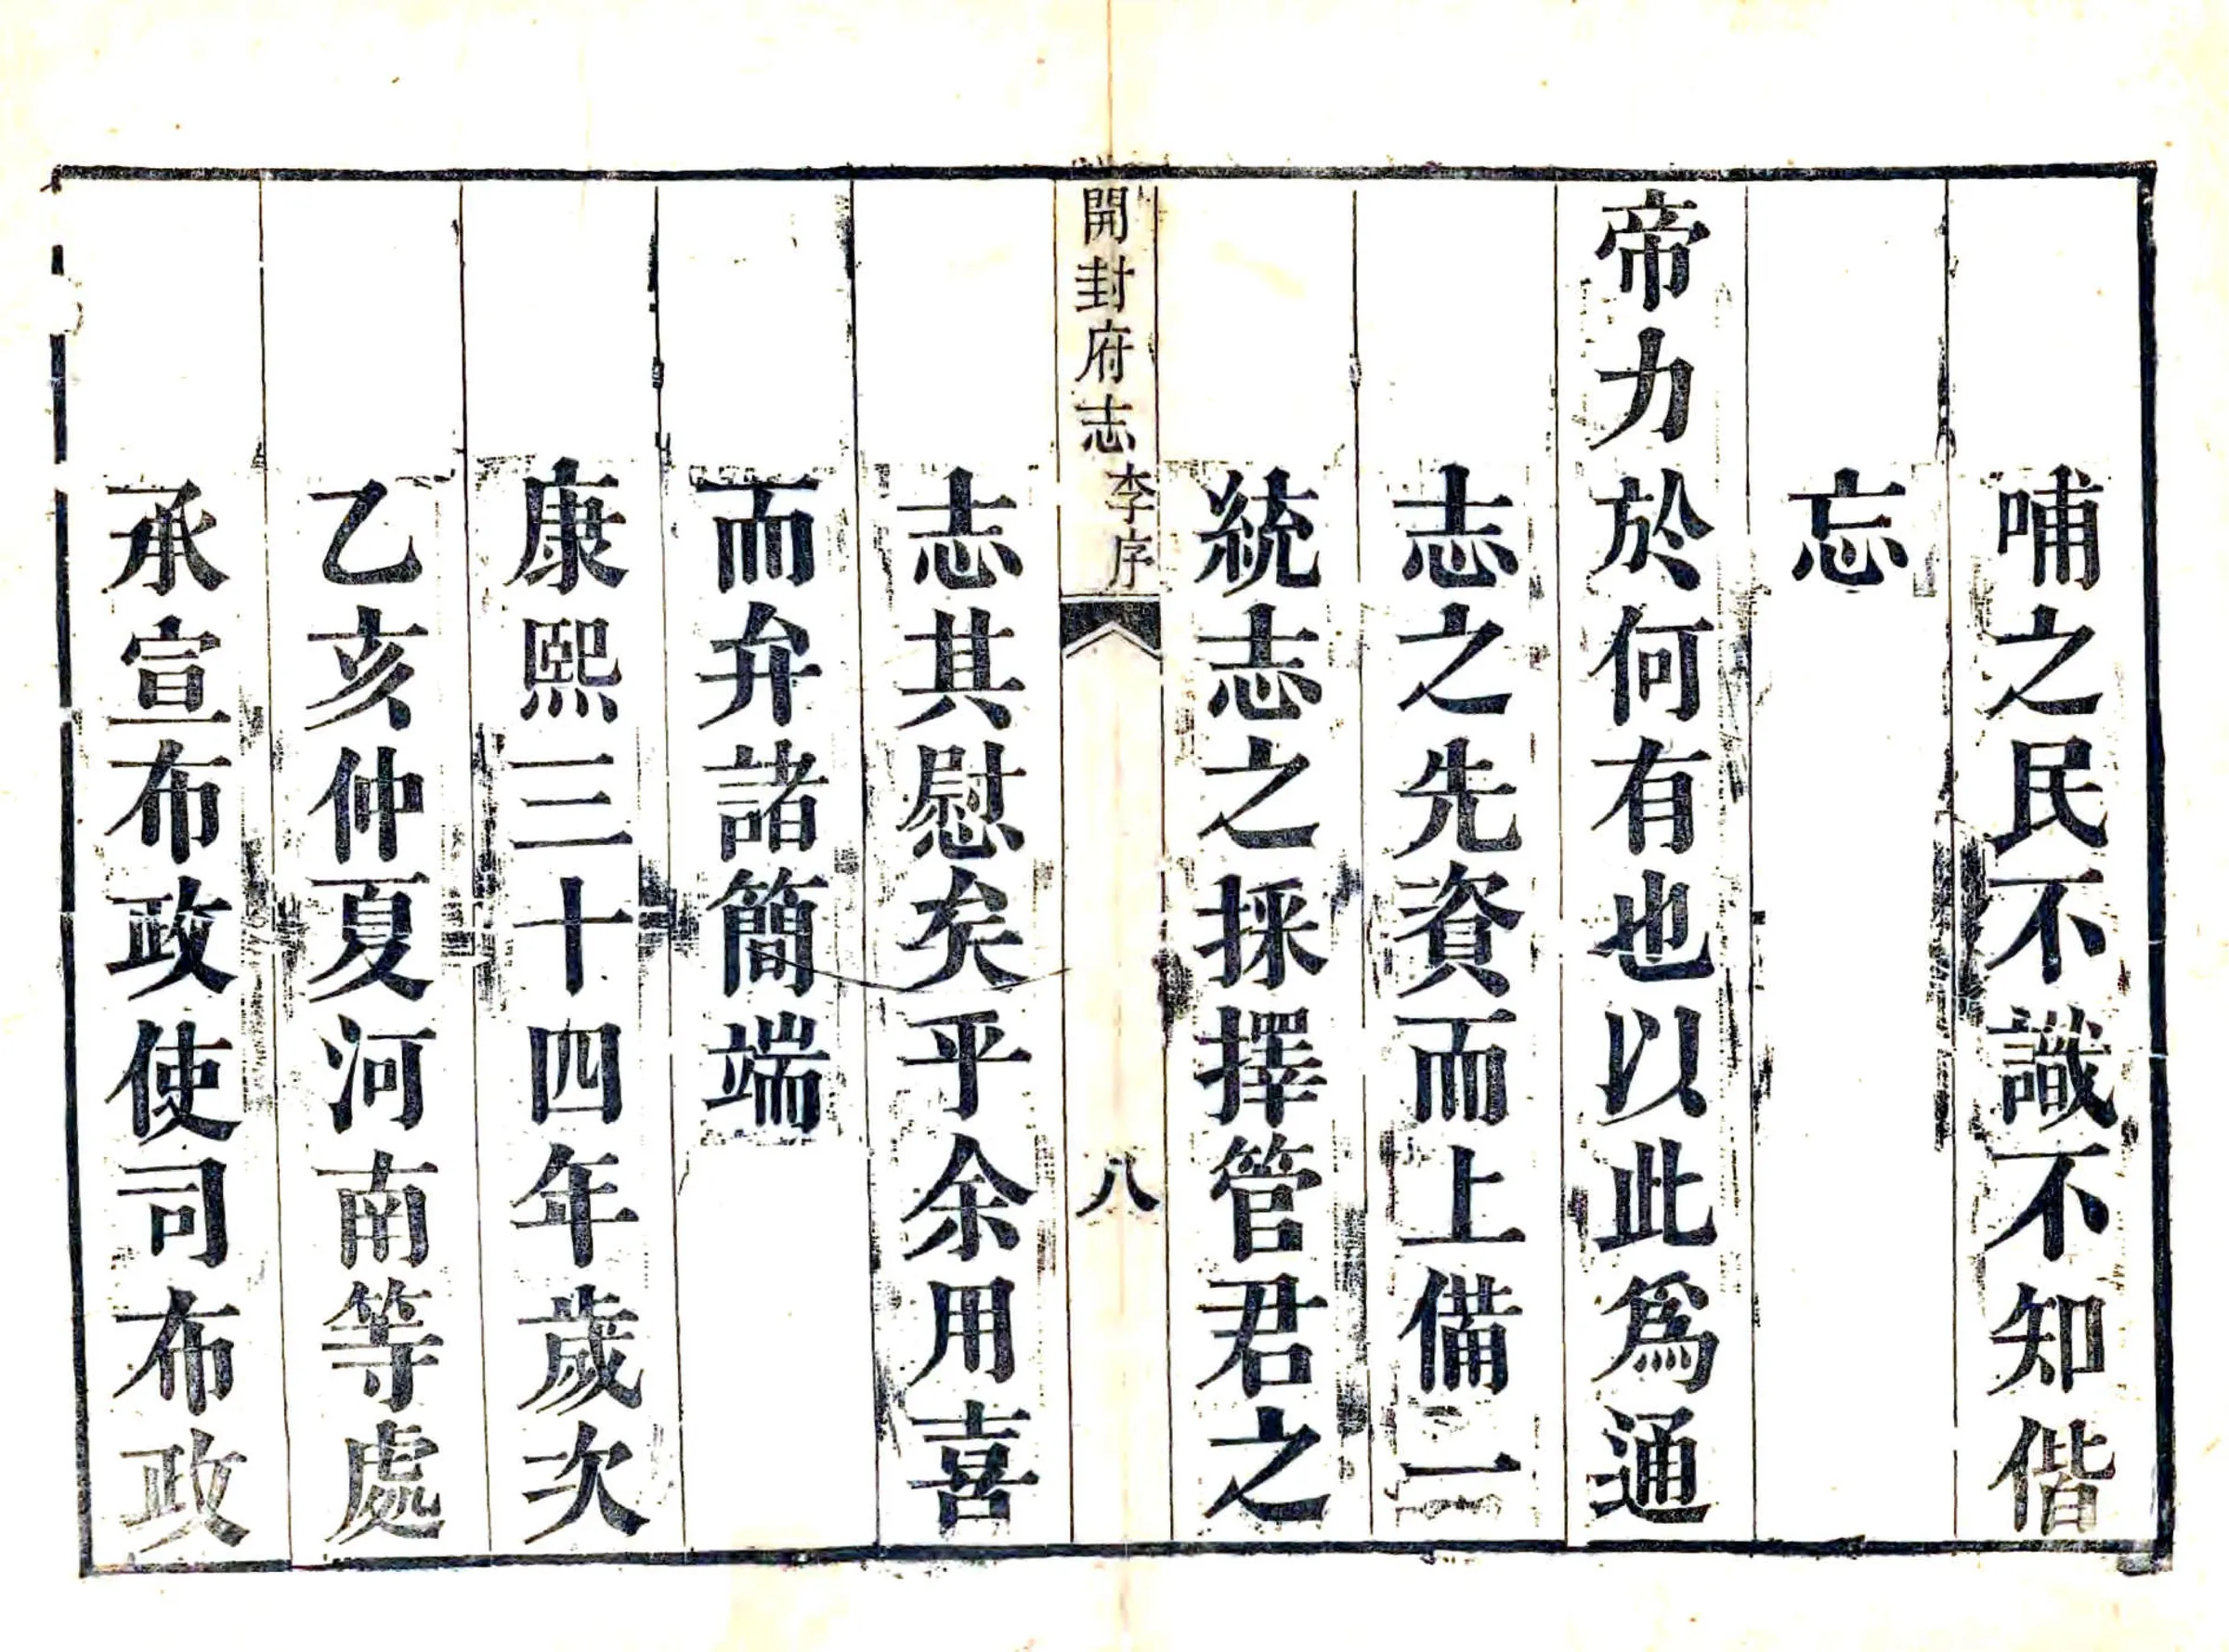 哺之民不識不知偕
忘
帝力於何有也以此爲通
志之先資而上備一
統志之採擇管君之
開封府志 李序 八
志其慰矣乎余用喜
而弁諸簡端
康熙三十四年歲次
乙亥仲夏河南等處
承宣布政使司布政